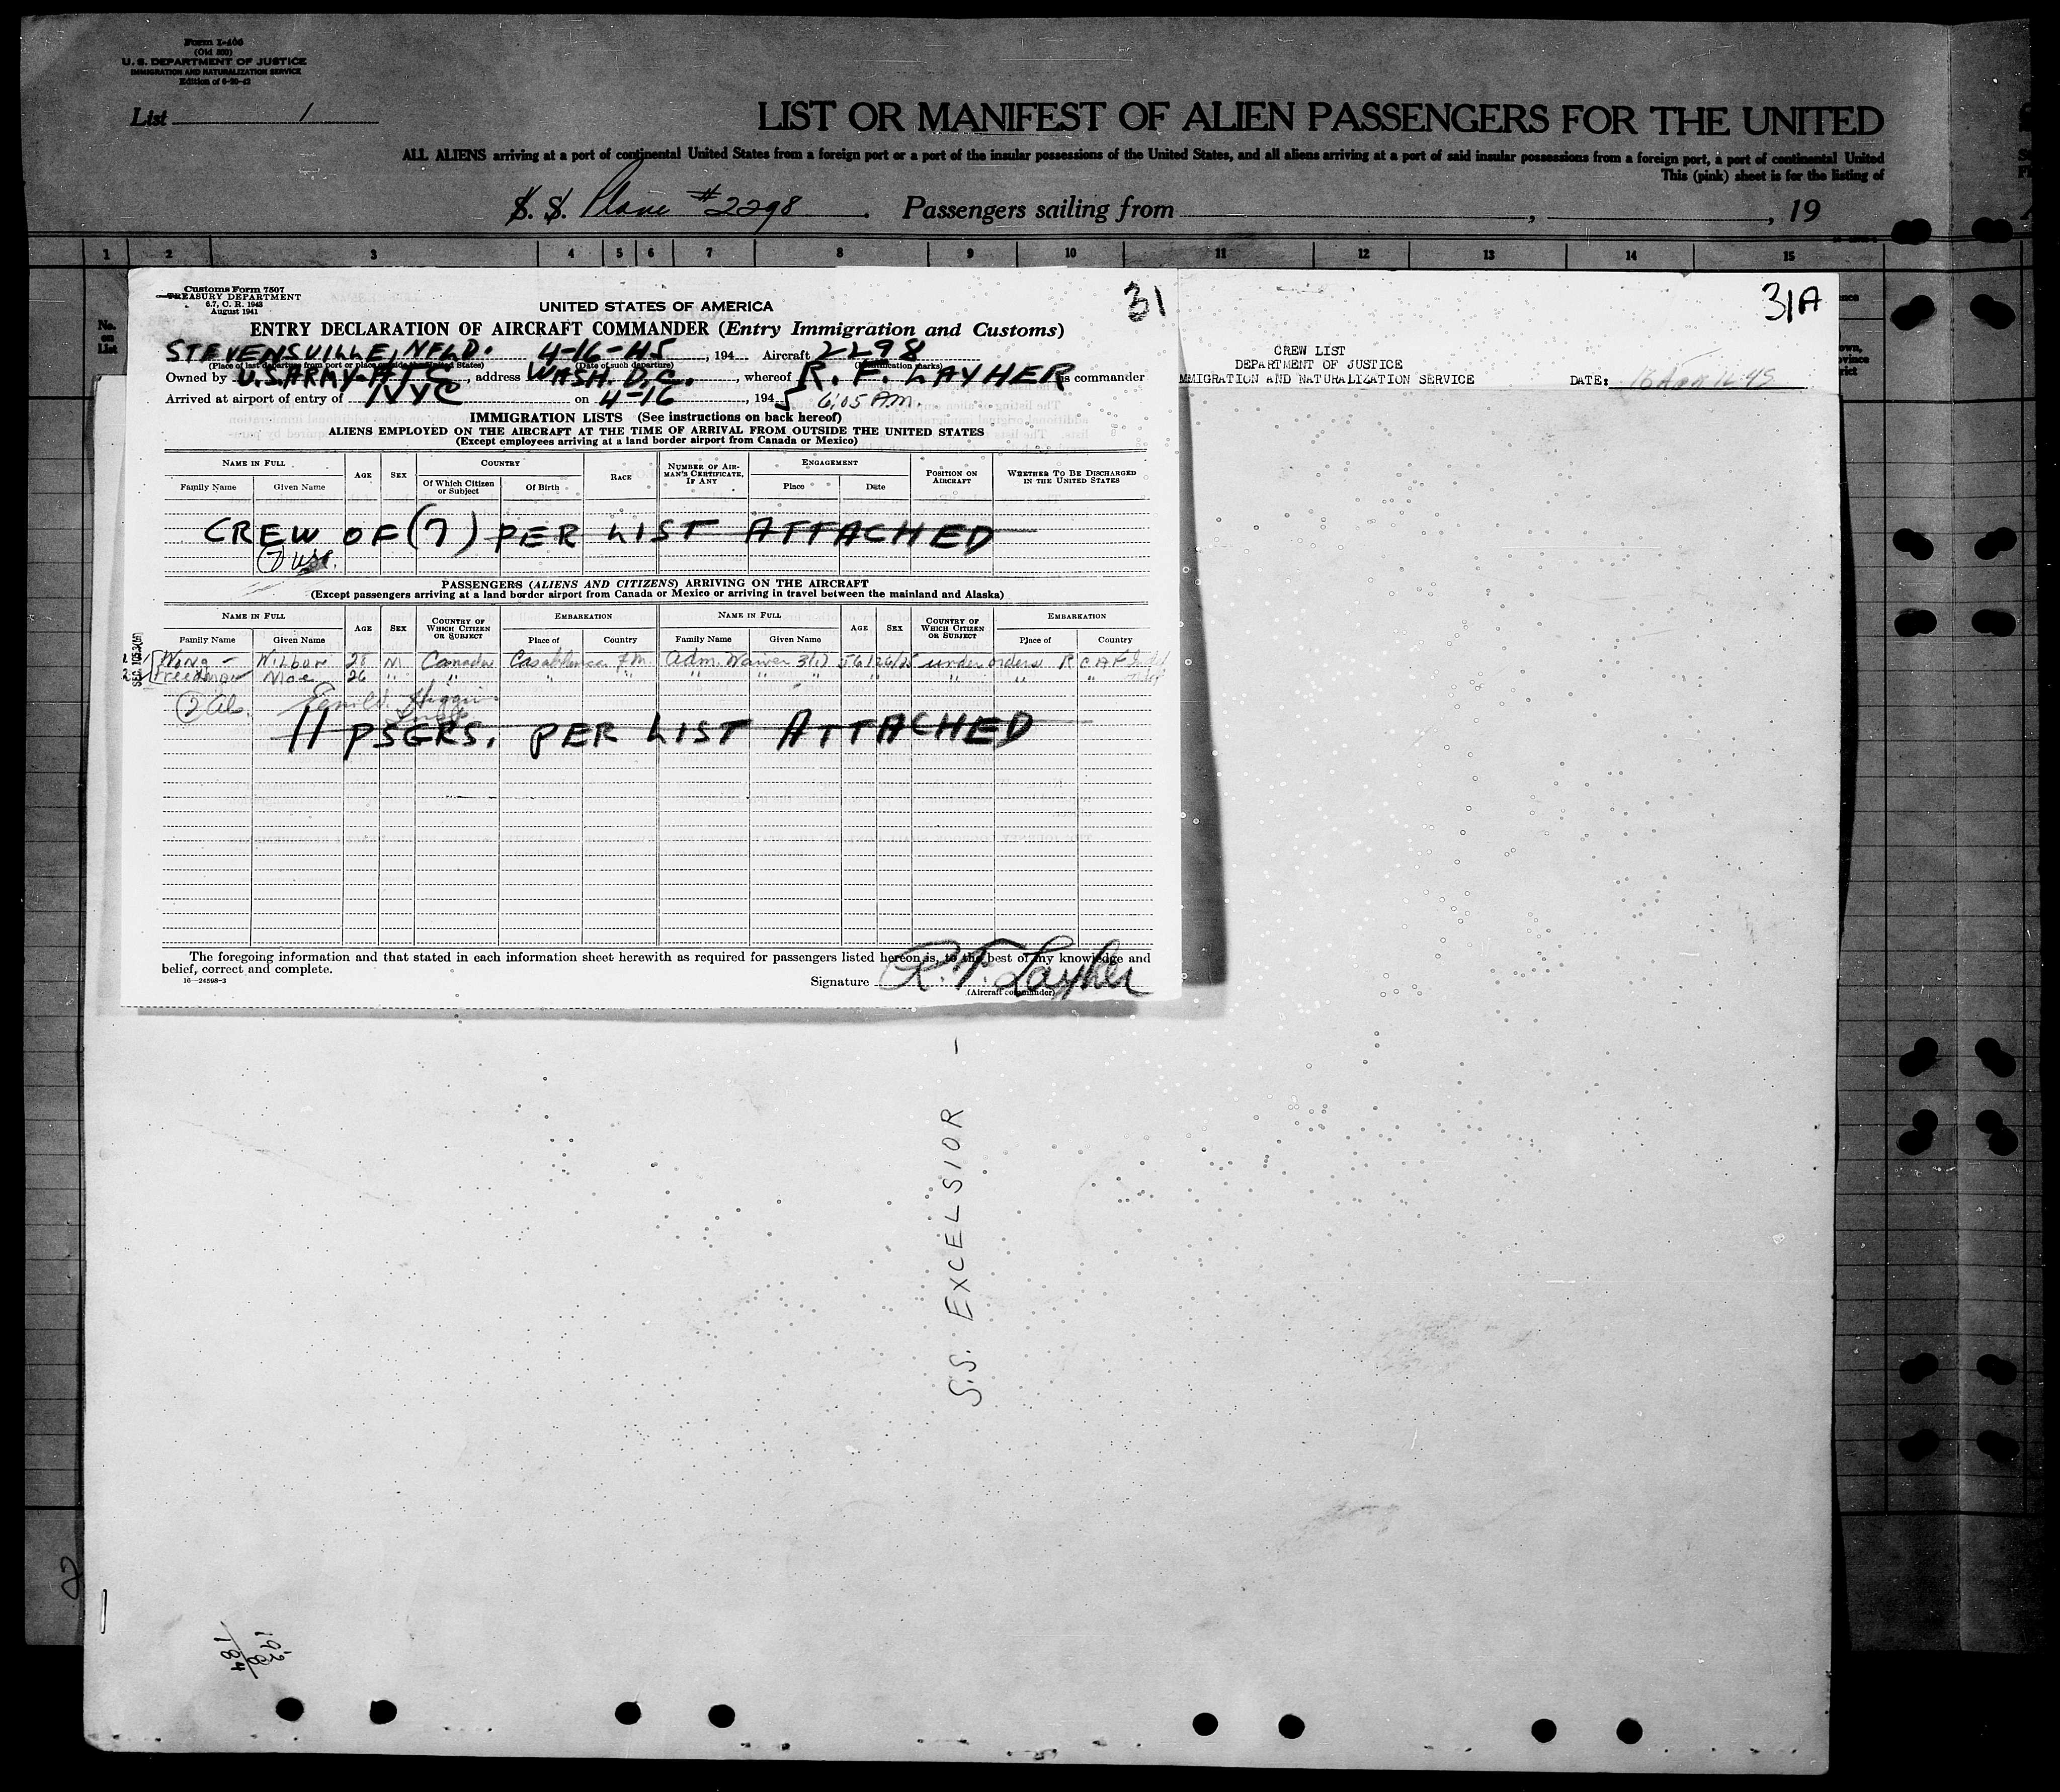 Form I-400
(Old 500)
U. S. DEPARTMENT OF JUSTICE
IMMIGRATION AND NATURALIZATION SERVICE
Edition of 6-20-42
List 1
LIST OR MANIFEST OF ALIEN PASSENGERS FOR THE UNITED
ALL ALIENS arriving at a port of continental United States from a foreign port or a port of the insular possessions of the United States, and all aliens arriving at a port of said insular possessions from a foreign port, a port of continental United
This (pink) sheet is for the listing of
S. S. Plane #2298. Passengers sailing from , , 19
1 2 3 4 5 6 7 8 9 10 11 12 13 14 15
No. on List
Customs Form 7507
TREASURY DEPARTMENT
6.7, C. R. 1943
August 1941
31
31A
UNITED STATES OF AMERICA
ENTRY DECLARATION OF AIRCRAFT COMMANDER (Entry Immigration and Customs)
STEVENSVILLE, NFLD. 4-16-45, 194 Aircraft 2298
(Place of last departure from port or place outside the United States) (Date of such departure) (Identification marks)
Owned by U.S. ARMY-ATC, address WASH. D.C., whereof R. F. LAYHER is commander
Arrived at airport of entry of NYC on 4-16, 1945 6:05 AM.
CREW LIST
DEPARTMENT OF JUSTICE
MMIGRATION AND NATURALIZATION SERVICE
DATE:
IMMIGRATION LISTS (See instructions on back hereof)
ALIENS EMPLOYED ON THE AIRCRAFT AT THE TIME OF ARRIVAL FROM OUTSIDE THE UNITED STATES
(Except employees arriving at a land border airport from Canada or Mexico)
NAME IN FULL AGE SEX COUNTRY RACE NUMBER OF AIRMAN'S CERTIFICATE, IF ANY ENGAGEMENT POSITION ON AIRCRAFT WHETHER TO BE DISCHARGED IN THE UNITED STATES
Family Name Given Name Of Which Citizen or Subject Of Birth Place Date
CREW OF (7) PER LIST ATTACHED
(7) USC.
PASSENGERS (ALIENS AND CITIZENS) ARRIVING ON THE AIRCRAFT
(Except passengers arriving at a land border airport from Canada or Mexico or arriving in travel between the mainland and Alaska)
NAME IN FULL AGE SEX COUNTRY OF WHICH CITIZEN OR SUBJECT EMBARKATION NAME IN FULL AGE SEX COUNTRY OF WHICH CITIZEN OR SUBJECT EMBARKATION
Family Name Given Name Place of Country Family Name Given Name Place of Country
Wong - Wilbur 28 M Canada Casablanca F.M. Adm. Waiver 3(7) under orders R C A F
Freedman Moe 26 " " " " " " " " " "
(2) Al.
11 PSGRS. PER LIST ATTACHED
The foregoing information and that stated in each information sheet herewith as required for passengers listed hereon is, to the best of my knowledge and
belief, correct and complete.
16-24598-3
Signature R. F. Layher
(Aircraft commander)
S.S. EXCELSIOR -